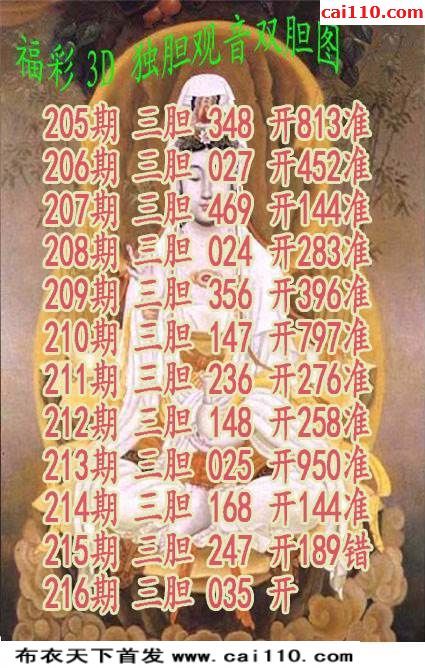 cai110.com
福彩 3D 独胆观音双胆图
205期 三胆 348 开813准
206期 三胆 027 开452准
207期 三胆 469 开144准
208期 三胆 024 开283准
209期 三胆 356 开396准
210期 三胆 147 开797准
211期 三胆 236 开276准
212期 三胆 148 开258准
213期 三胆 025 开950准
214期 三胆 168 开144准
215期 三胆 247 开189错
216期 三胆 035 开
布衣天下首发 www.cai110.com